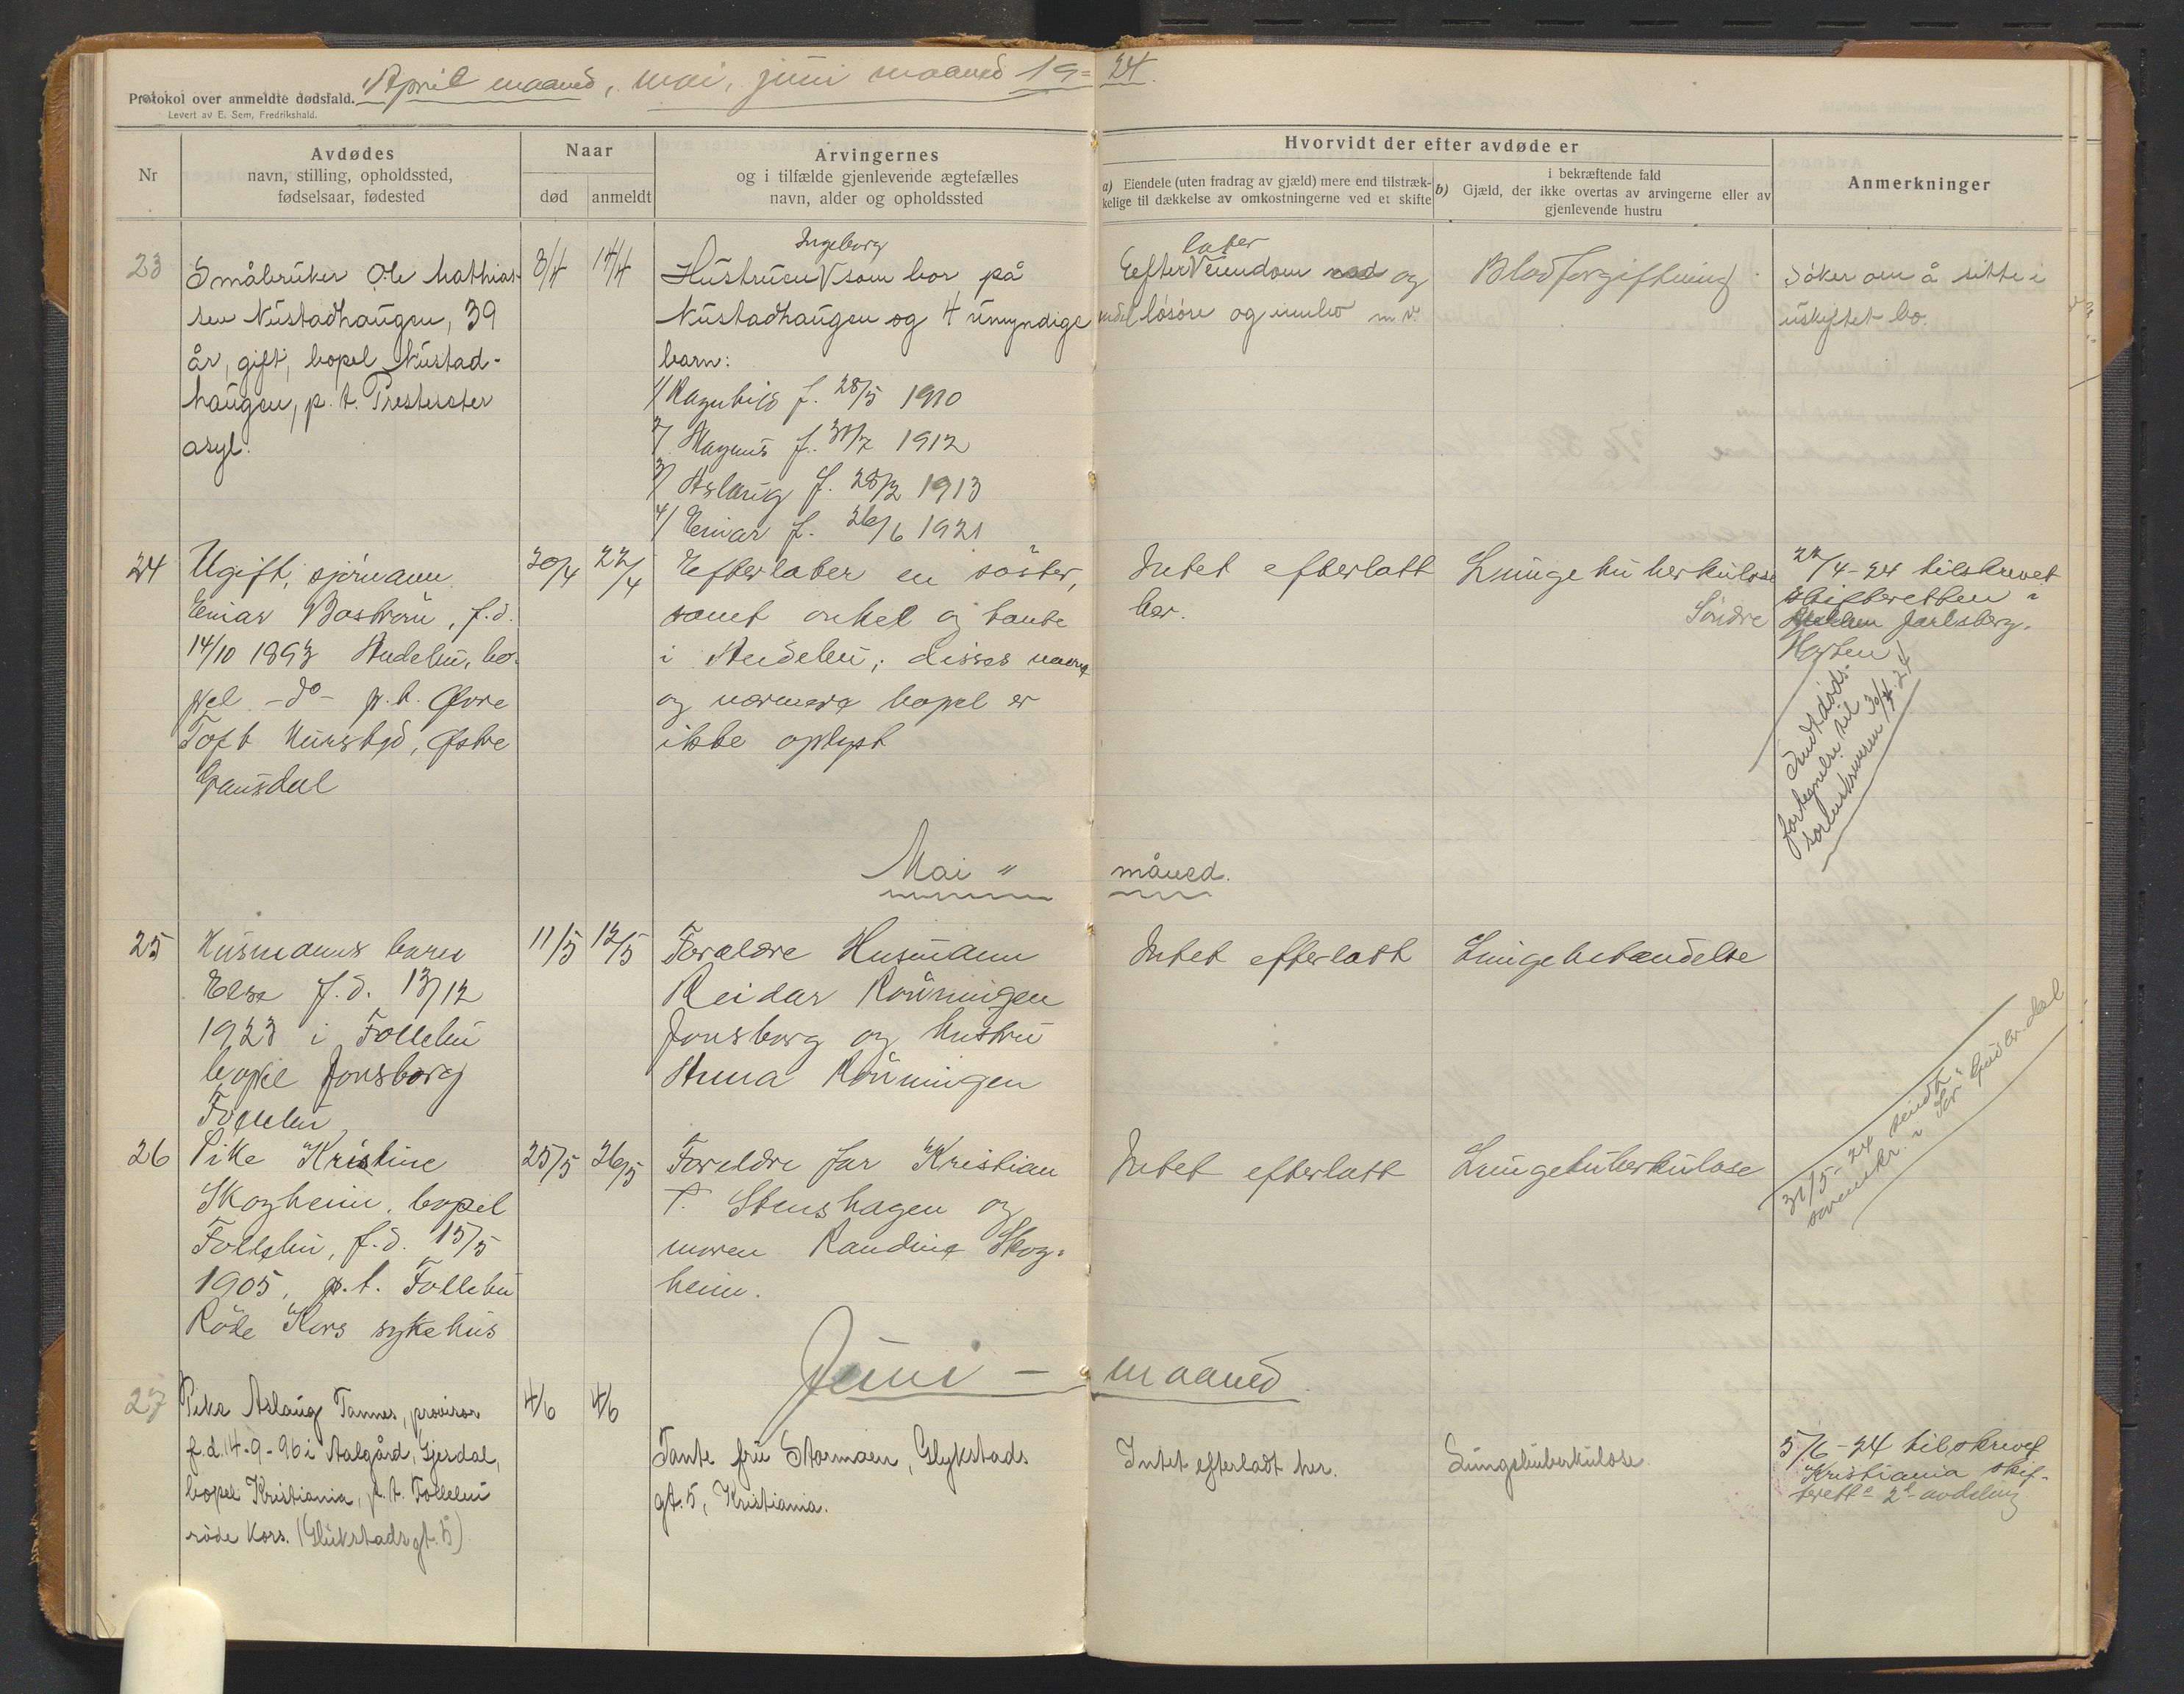 April maaned, mai, juni maaned 19=24.
Protokol over anmeldte dødsfald.
Levert av E. Sem, Fredrikshald.
Nr
Avdødes
navn, stilling, opholdssted,
fødselsaar, fødested
Naar
død
anmeldt
Arvingernes
og i tilfælde gjenlevende ægtefælles
navn, alder og opholdssted
Hvorvidt der efter avdøde er
a) Eiendele (uten fradrag av gjæld) mere end tilstræk-
kelige til dækkelse av omkostningerne ved et skifte
b) i bekræftende fald
Gjæld, der ikke overtas av arvingerne eller av
gjenlevende hustru
Anmerkninger
23
Småbruker Ole Mathias-
sen Nustadhaugen, 39
år, gift, bopel Nustad-
haugen, p.t. Presteseter
asyl.
8/4
14/4
Ingeborg
Hustruen V som bor på
Nustadhaugen og 4 umyndige
barn:
1/ Ragnhild f. 28/5 1910
2/ Magnus f. 31/7 1912
3/ Aslaug f. 28/2 1913
4/ Einar f. 26/6 1921
later
Efter V eiendom og
løsøre og innbo m.v.
Blodforgiftning.
Søker om å sitte i
uskiftet bo.
24
Ugift, sjömann
Einar Boström, f.d.
14/10 1893 Andebu, bo-
pel -do- p.t. Øvre
Toft Kursted, Østre
Gausdal
20/4
22/4
Efterlater en söster,
samt onkel og tante
i Andebu; disses navne
og nærmere bopel er
ikke oplyst
Intet efterlatt
her.
Lungetuberkulose
22/4-24 tilskrevet
skifteretten i
Söndre Jarlsberg.
Horten
Indk. døds-
fortegnelse til
sorenskriveren 30/4-24
Mai " måned.
25
Husmanns barn
Elsa f.d. 13/12
1923 i Follebu
bopel Jonsborg
Follebu
11/5
12/5
Forældre Husmann
Reidar Rönningen
Jonsborg og hustru
Anna Rönningen
Intet efterlatt
Lungebetændelse
26
Pike Kristine
Skogheim, bopel
Follebu, f.d. 15/5
1905, p.t. Follebu
Röde Kors sykehus
25/5
26/5
Foreldre far Kristian
T. Stenshagen og
moren Randine Skog-
heim.
Intet efterlatt
Lungetuberkulose
31/5-24 sendt
sorenskr. i Sør Gudbr.dal
Juni - maaned.
27
Pike Aslaug Tannes, provisor
f.d. 14-9-96 i Aalgård, Gjesdal,
bopel Kristiania, p.t. Follebu
røde Kors. (Glükstadsgt. 5)
4/6
4/6
Tante fru Stormoen, Glykstads
gt. 5, Kristiania.
Intet efterladt her.
Lungetuberkulose.
5/6-24 tilskrevet
Kristiania skif-
terett 2d avdeling